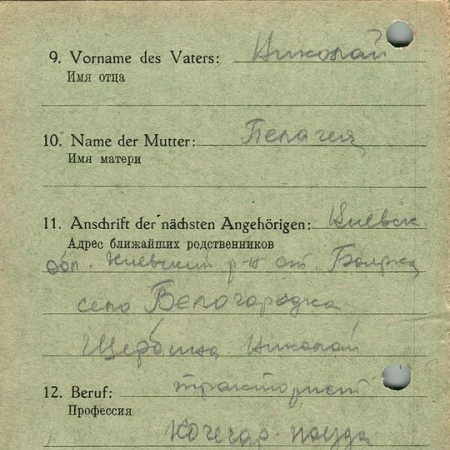 9. Vorname des Vaters: Николай
Имя отца
10. Name der Mutter: Пелагея
Имя матери
11. Anschrift der nächsten Angehörigen: Киевск
Адрес ближайших родственников
обл. Киевский р-н ст. Боярка
село Белогородка
Щербина Николай
12. Beruf: тракторист
Профессия
Кочегар